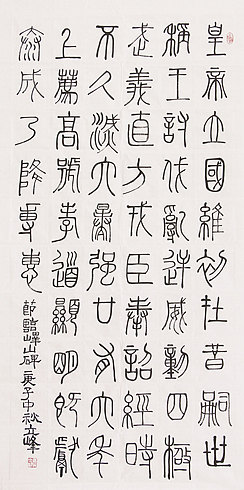 皇帝立國維初在昔嗣世
稱王討伐亂逆威動四極
武義直方戎臣奉詔經時
不久滅六暴強廿有六年
上薦高號孝道顯明既獻
泰成乃降專惠
節臨嶧山碑庚子中秋立峰